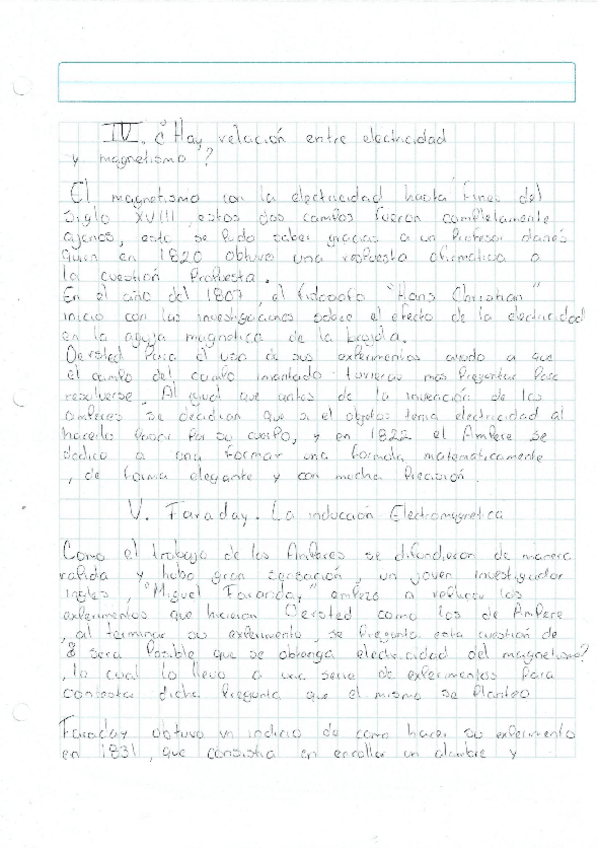 IV. ¿Hay relación entre electricidad
y magnetismo?
El magnetismo con la electricidad hasta fines del
Siglo XVIII, estos dos campos fueron completamente
ajenos, esto se pudo saber gracias a un Profesor danés
quien en 1820 obtuvo una respuesta afirmatica a
la cuestión Propuesta.
En el año del 1807, el "Hans Christian"
inicio con las investigaciones sobre el efecto de la electricidad
en la aguja magnetica de la brujula.
Oersted Para el uso de sus experimentos ayudo a que
el campo del cuerpo imantado tuvieran mas Preguntas Para
resolverse. Al igual que antes de la invención de los
amperes se decidian que si el objetos tenia electricidad al
hacerlo Pasar Por su cuerpo, y en 1822 el Ampere se
dedico a una formar una formula matemáticamente
, de forma elegante y con mucha Precisión.
V. Faraday. La inducción Electromagnetica
Como el trabajo de los Amperes se difundieron de manera
rapida y hubo gran sensación, un joven investigador
ingles, "Miguel Fararday" empezo a replicar los
experimentos que hicieron Oersted como los de Ampere
, al terminar su experimento, se Pregunta esta cuestión de
¿ sera Posible que se obtenga electricidad del magnetismo?
, lo cual lo llevo a una serie de experimentos Para
contestar dicha Pregunta que el mismo se Planteo
Faraday obtuvo un indicio de como hacer su experimento
en 1831, que consistia en enrollar un alambre y